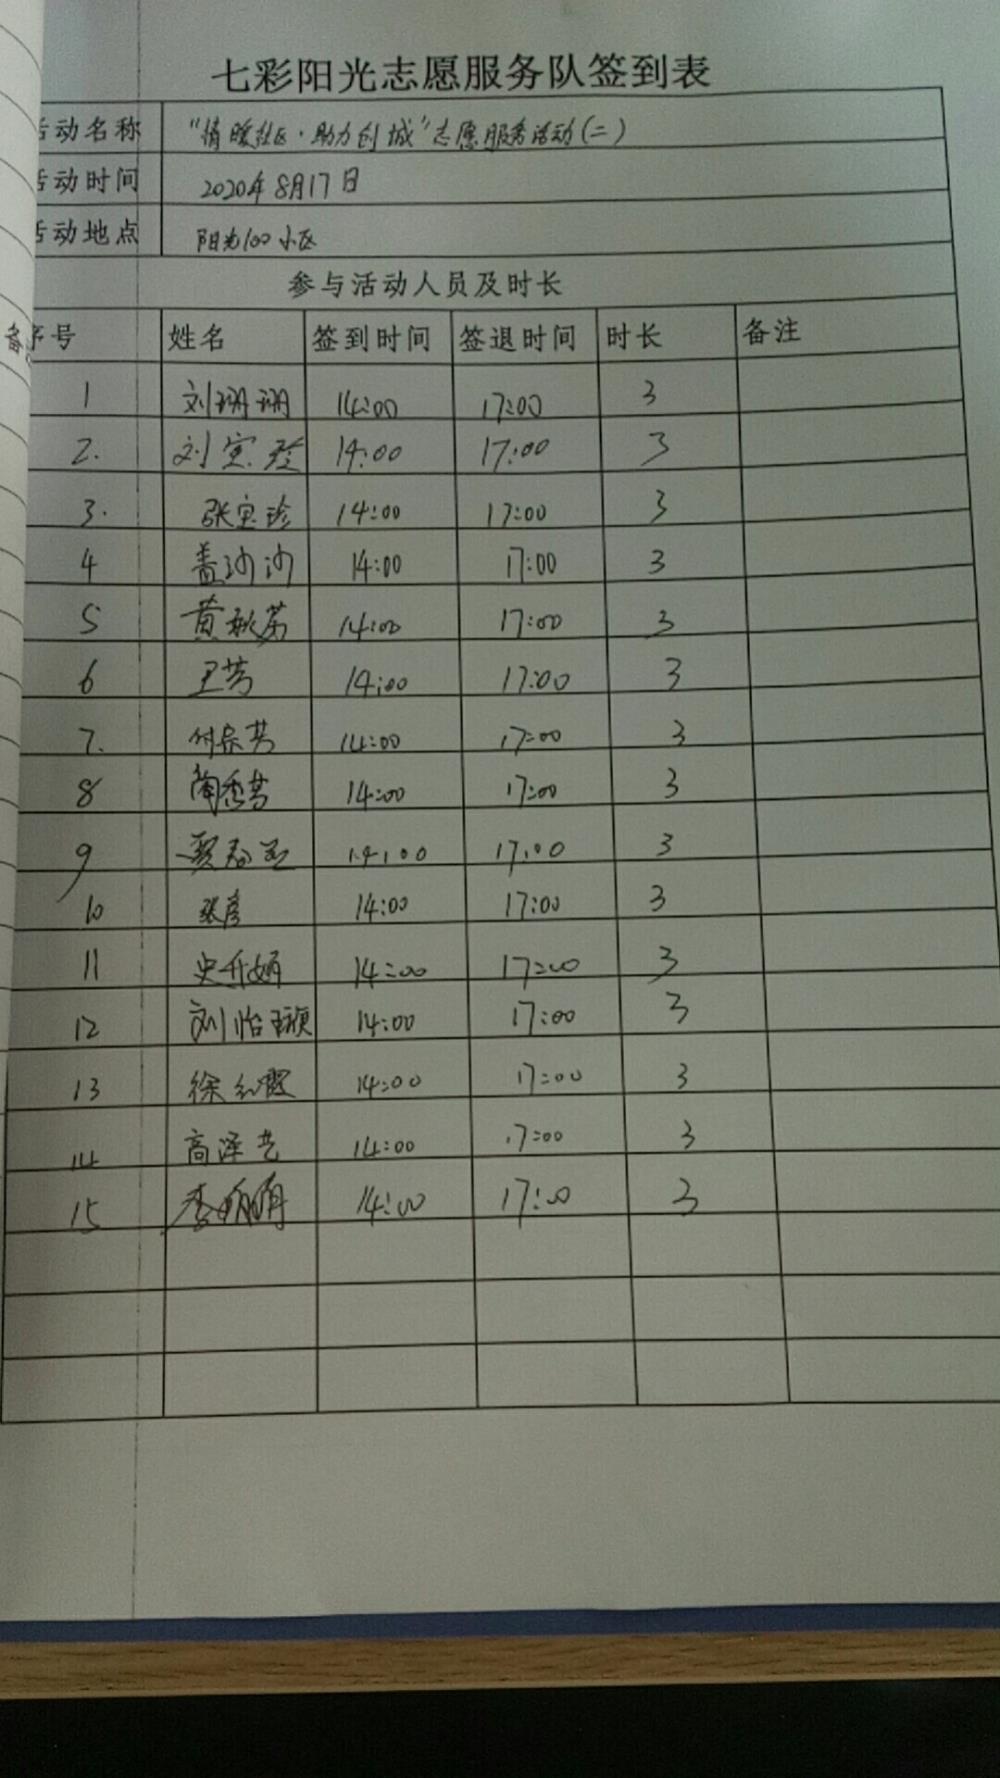 七彩阳光志愿服务队签到表
活动名称 “情暖社区·助力创城”志愿服务活动(二)
活动时间 2020年8月17日
活动地点 阳光100小区
参与活动人员及时长
备 序号 姓名 签到时间 签退时间 时长 备注
1 刘珊珊 14:00 17:00 3
2. 刘宝玲 14:00 17:00 3
3. 张宝珍 14:00 17:00 3
4 盖沙沙 14:00 17:00 3
5 黄秋菊 14:00 17:00 3
6 王芳 14:00 17:00 3
7. 14:00 17:00 3
8 蔺秀芳 14:00 17:00 3
9 14:00 17:00 3
10 张彦 14:00 17:00 3
11 史升娟 14:00 17:00 3
12 刘怡璇 14:00 17:00 3
13 徐红霞 14:00 17:00 3
14 高泽艺 14:00 17:00 3
15 李娟娟 14:00 17:00 3